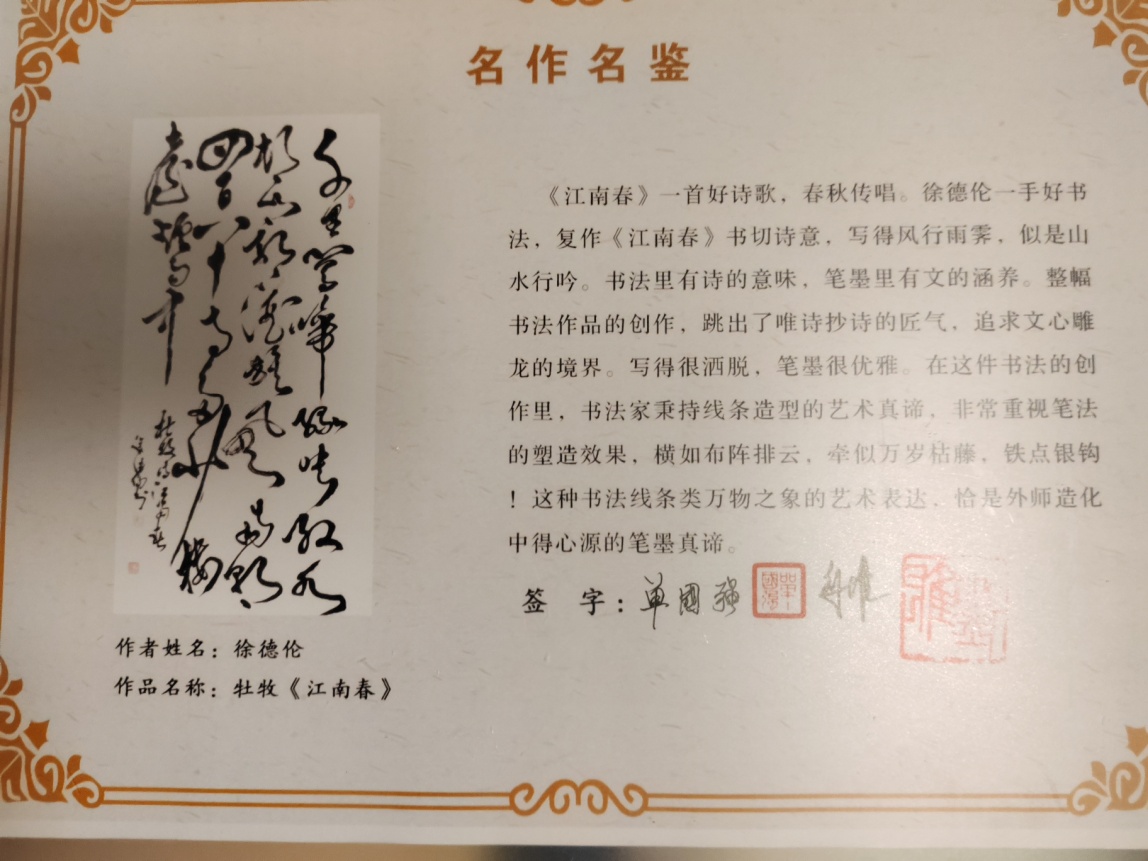 名作名鉴
千里鶯啼綠映紅水
村山郭酒旗風南朝
四百八十寺多少樓
臺煙雨中
杜牧詩江南春
作者姓名：徐德伦
作品名称：牡牧《江南春》
《江南春》一首好诗歌，春秋传唱。徐德伦一手好书
法，复作《江南春》书切诗意，写得风行雨霁，似是山
水行吟。书法里有诗的意味，笔墨里有文的涵养。整幅
书法作品的创作，跳出了唯诗抄诗的匠气，追求文心雕
龙的境界。写得很洒脱，笔墨很优雅。在这件书法的创
作里，书法家秉持线条造型的艺术真谛，非常重视笔法
的塑造效果，横如布阵排云，牵似万岁枯藤，铁点银钩
！这种书法线条类万物之象的艺术表达，恰是外师造化
中得心源的笔墨真谛。
签 字：单國强